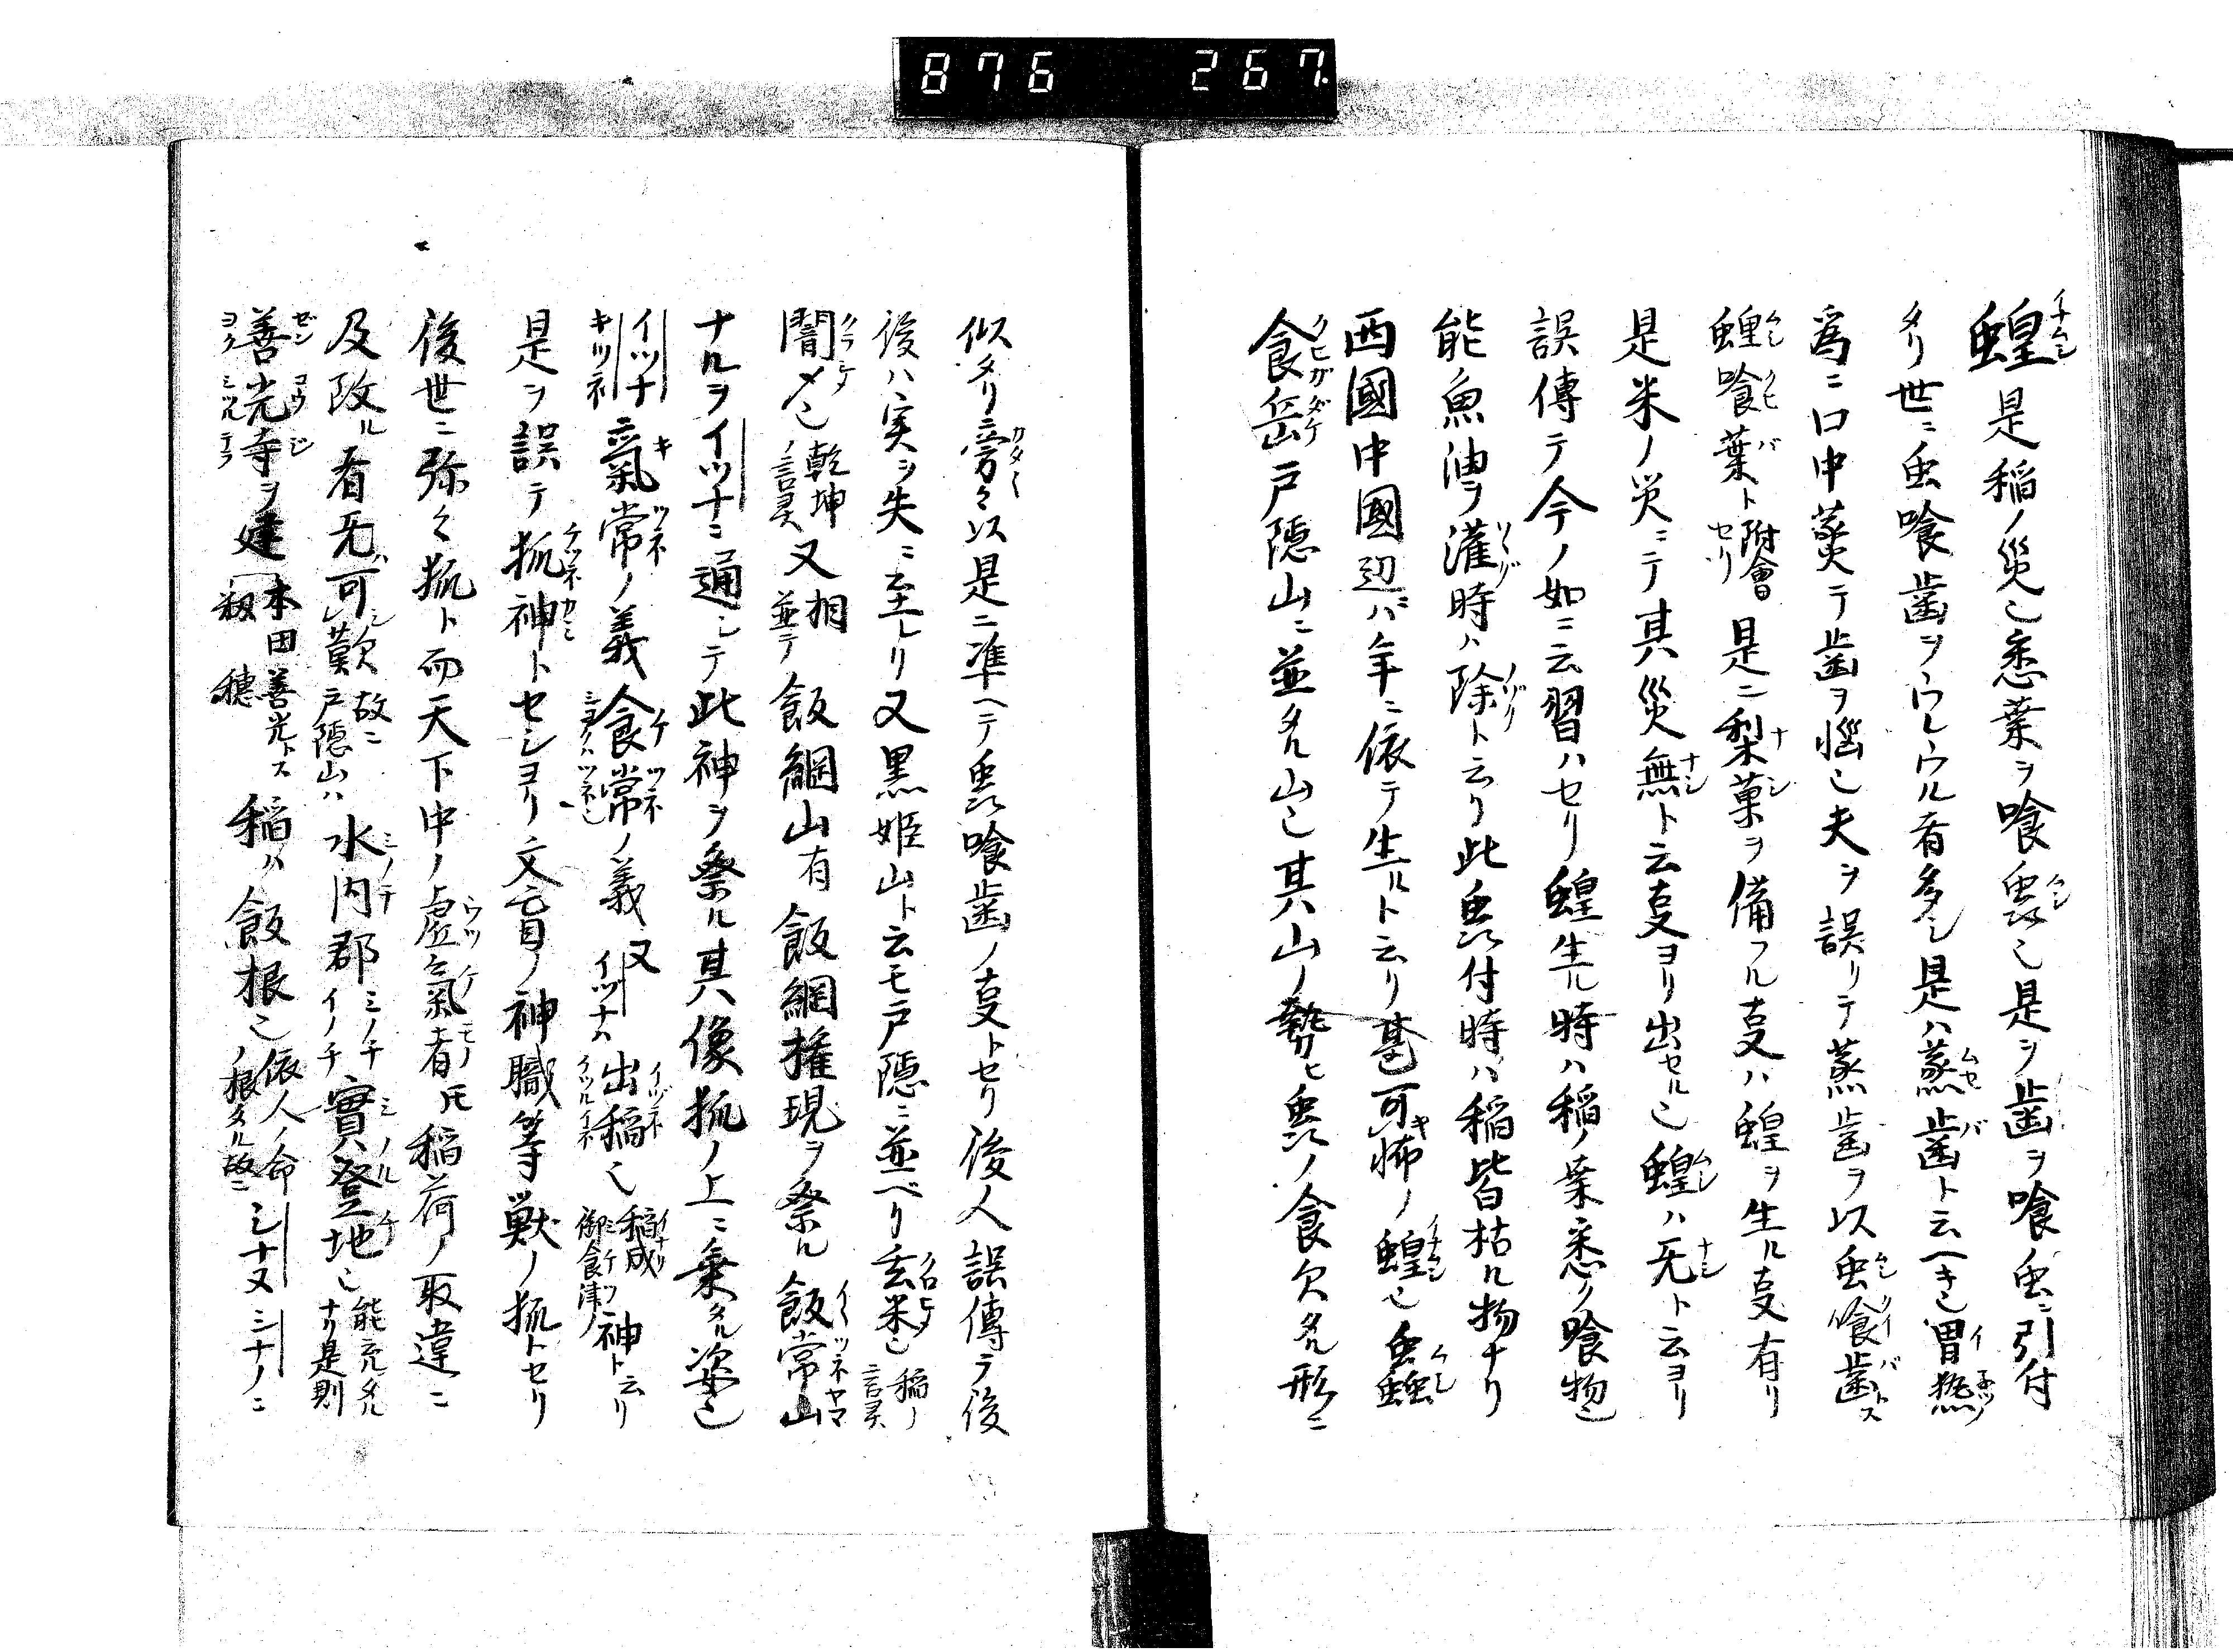 876 267
蝗 是稲ノ災也悉葉ヲ喰蟲也是ヲ歯ヲ喰虫ニ引付
タリ世ニ虫喰歯ヲウレウル者多シ是ハ蒸歯ト云ヘキ也胃熱ノ
為ニ口中蒸テ歯ヲ悩也夫ヲ誤リテ蒸歯ヲ以虫喰歯トス
蝗喰葉ト附會セリ 是ニ梨菓ヲ備フル叓ハ蝗ヲ生ル叓有リ
是米ノ災ニテ其災無ト云叓ヨリ出セル也蝗ハ无ト云ヨリ
誤傳テ今ノ如ニ云習ハセリ蝗生ル時ハ稲ノ葉悉ク喰物也
能魚油ヲ灌時ハ除ト云リ此蟲付時ハ稲皆枯ル物ナリ
西國中國辺ハ年ニ依テ生ルト云リ甚可怖ノ蝗也
食岳戸隠山ニ並タル山也其山ノ勢ヒ蟲ノ食欠タル形ニ
似タリ旁々以是ニ準ヘテ蟲喰歯ノ叓トセリ後人誤傳テ後
後ハ実ヲ失ニ至レリ又黒姫山ト云モ戸隠ニ並ベリ玄米也 稲ノ言灵
闇〆也 乾坤ノ言灵 又相並テ 飯綱山有飯綱権現ヲ祭ル飯常山
ナルヲイツナニ通シテ此神ヲ祭ル其像狐ノ上ニ乗タル姿也
イツナ キツネ 氣常ノ義食常ノ義又イツナハ出稲也 稲成 御食津ノ神ト云リ
是ヲ誤テ狐神トセシヨリ文盲ノ神職等獣ノ狐トセリ
後世ニ弥々狐ト而天下中ノ虚氣者𪜈稲荷ノ取違ニ
及改ル者无可歎 故ニ戸隠山ハ 水内郡 ミノチ イノチ 實登地也 能充タルナリ是則
善光寺ヲ建 本田善光トス 穂 稲ハ飯根也 依人ノ命ノ根タル故ニ シナ又シナノニ